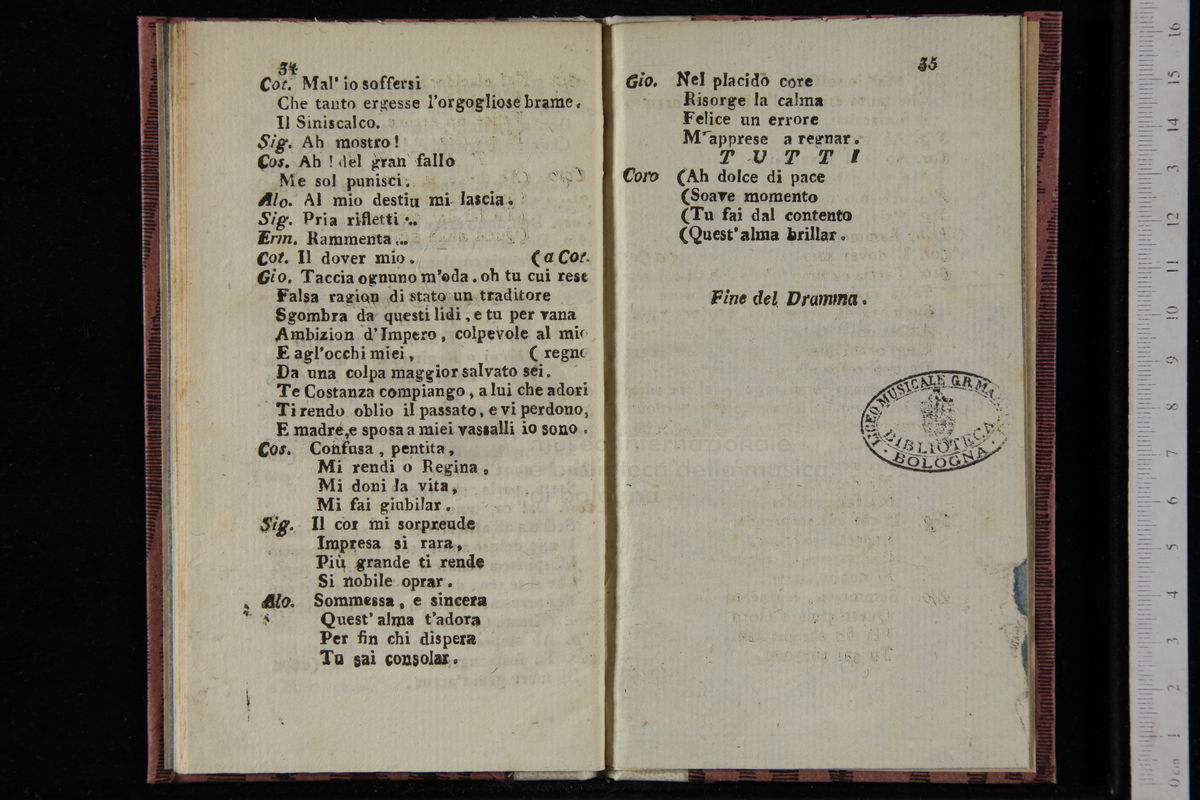 34
Cot. Mal' io soffersi
Che tanto ergesse l'orgogliose brame.
Il Siniscalco.
Sig. Ah mostro!
Cos. Ah! del gran fallo
Me sol punisci.
Alo. Al mio destiu mi lascia.
Sig. Pria rifletti ...
Erm. Rammenta...
Cot. Il dover mio. (a Cot.
Gio. Taccia ognuno m'oda. oh tu cui rese
Falsa ragion di stato un traditore
Sgombra da questi lidi, e tu per vana
Ambizion d'Impero, colpevole al mio
E agl'occhi miei, ( regno
Da una colpa maggior salvato sei.
Te Costanza compiango, a lui che adori
Ti rendo oblio il passato, e vi perdono,
E madre,e sposa a miei vassalli io sono.
Cos. Confusa, pentita,
Mi rendi o Regina,
Mi doni la vita,
Mi fai giubilar.
Sig. Il cor mi sorpreude
Impresa si rara,
Più grande ti rende
Si nobile oprar.
Alo. Sommessa, e sincera
Quest' alma t'adora
Per fin chi dispera
Tu sai consolar.
35
Gio. Nel placido core
Risorge la calma
Felice un errore
M'apprese a regnar.
TUTTI
Coro (Ah dolce di pace
(Soave momento
(Tu fai dal contento
(Quest'alma brillar.
Fine del Dramma.
LICEO MUSICALE G.B. MA
BIBLIOTECA
BOLOGNA
museo internazionale
e biblioteca della musica
di bologna
0 cm 1 2 3 4 5 6 7 8 9 10 11 12 13 14 15 16